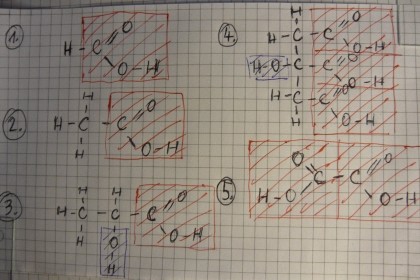 1.
H-C=O
O-H
2.
H
H-C-C=O
H O-H
3.
H H
H-C-C-C=O
H O O-H
H
4.
H
H-C-C=O
O-H
HO-C-C=O
O-H
H-C-C=O
H O-H
5.
O=C-C=O
H-O O-H